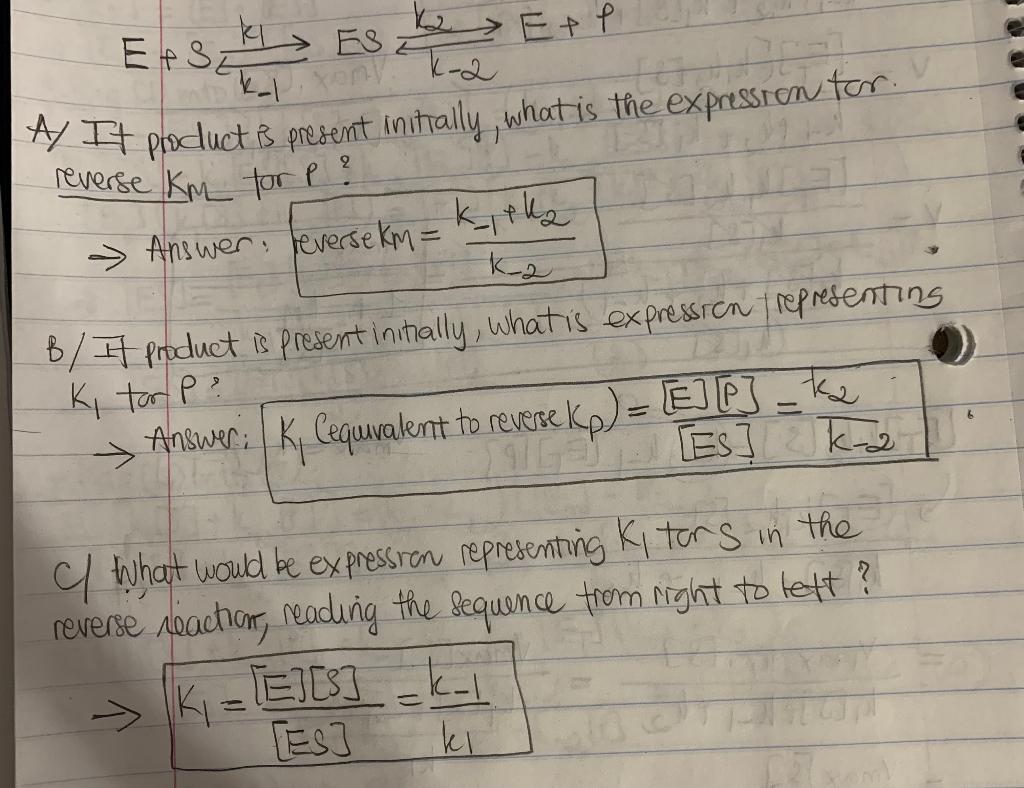 E + S ⇌ ES ⇌ E + P
k1 k2
k-1 k-2
A/ If product is present initially, what is the expression for
reverse KM for P?
→ Answer: reverse KM = (k-1 + k2) / k-2
B/ If product is present initially, what is expression representing
KI for P?
→ Answer: KI (equivalent to reverse Kp) = [E][P] / [ES] = k2 / k-2
C/ What would be expression representing KI for S in the
reverse reaction, reading the sequence from right to left?
→ KI = [E][S] / [ES] = k-1 / k1